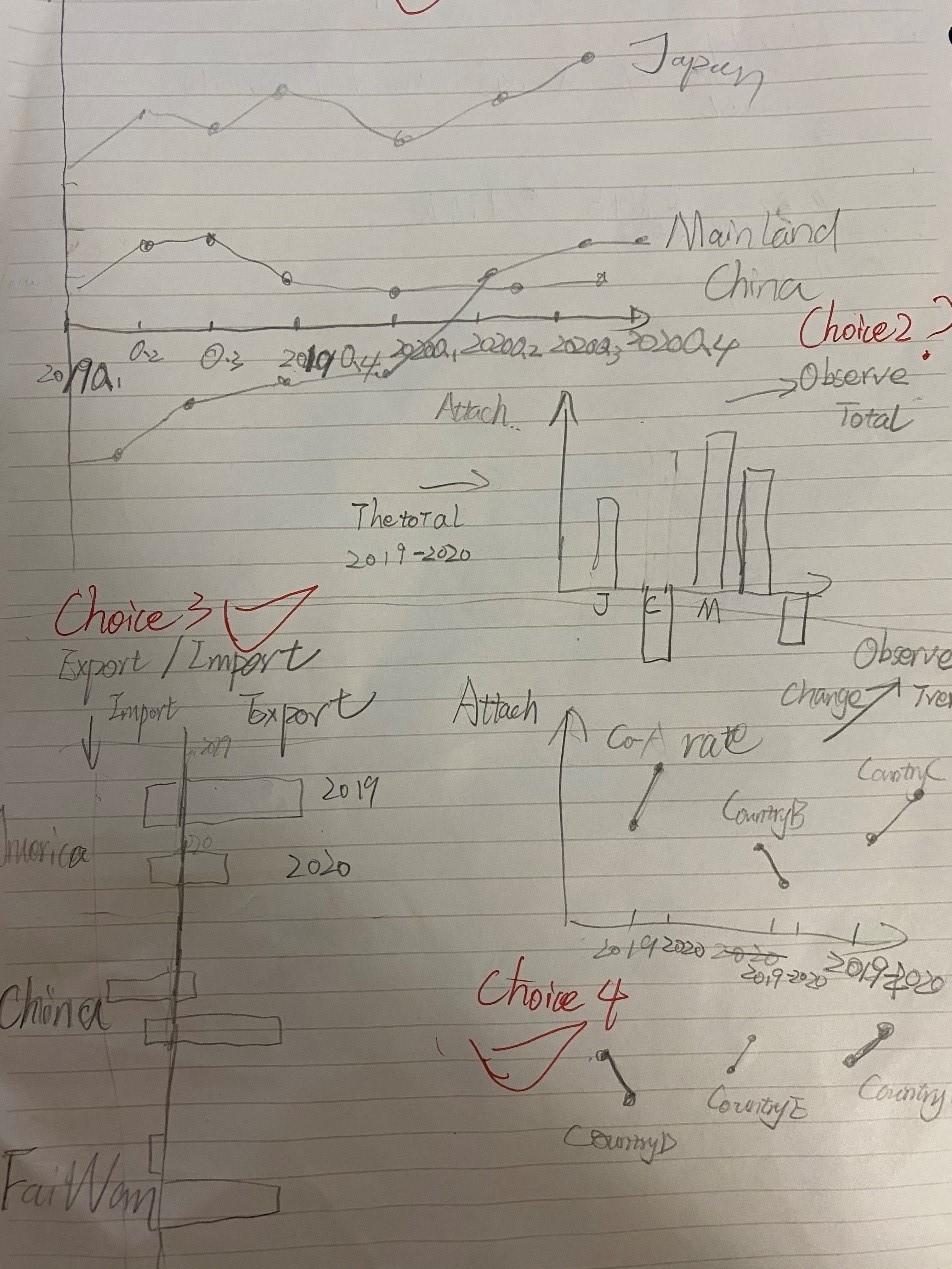 Japan
Mainland
China
2019Q1 Q.2 Q.3 2019Q.4 2020Q.1 2020Q.2 2020Q.3 2020Q.4
Choice2 ?
Observe
Total
Attach..
The total
2019-2020
J C M
Choice 3
Export/Import
Import Export
2019
2019
2020
China
Attach
rate
Observe
Change
CountryB
CountryC
2019 2020 2020 2019-2020 2019-2020
Choice 4
CountryD
CountryE
Country